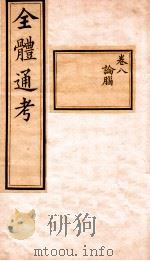 全體通考
卷八
論腦
mtoou.info